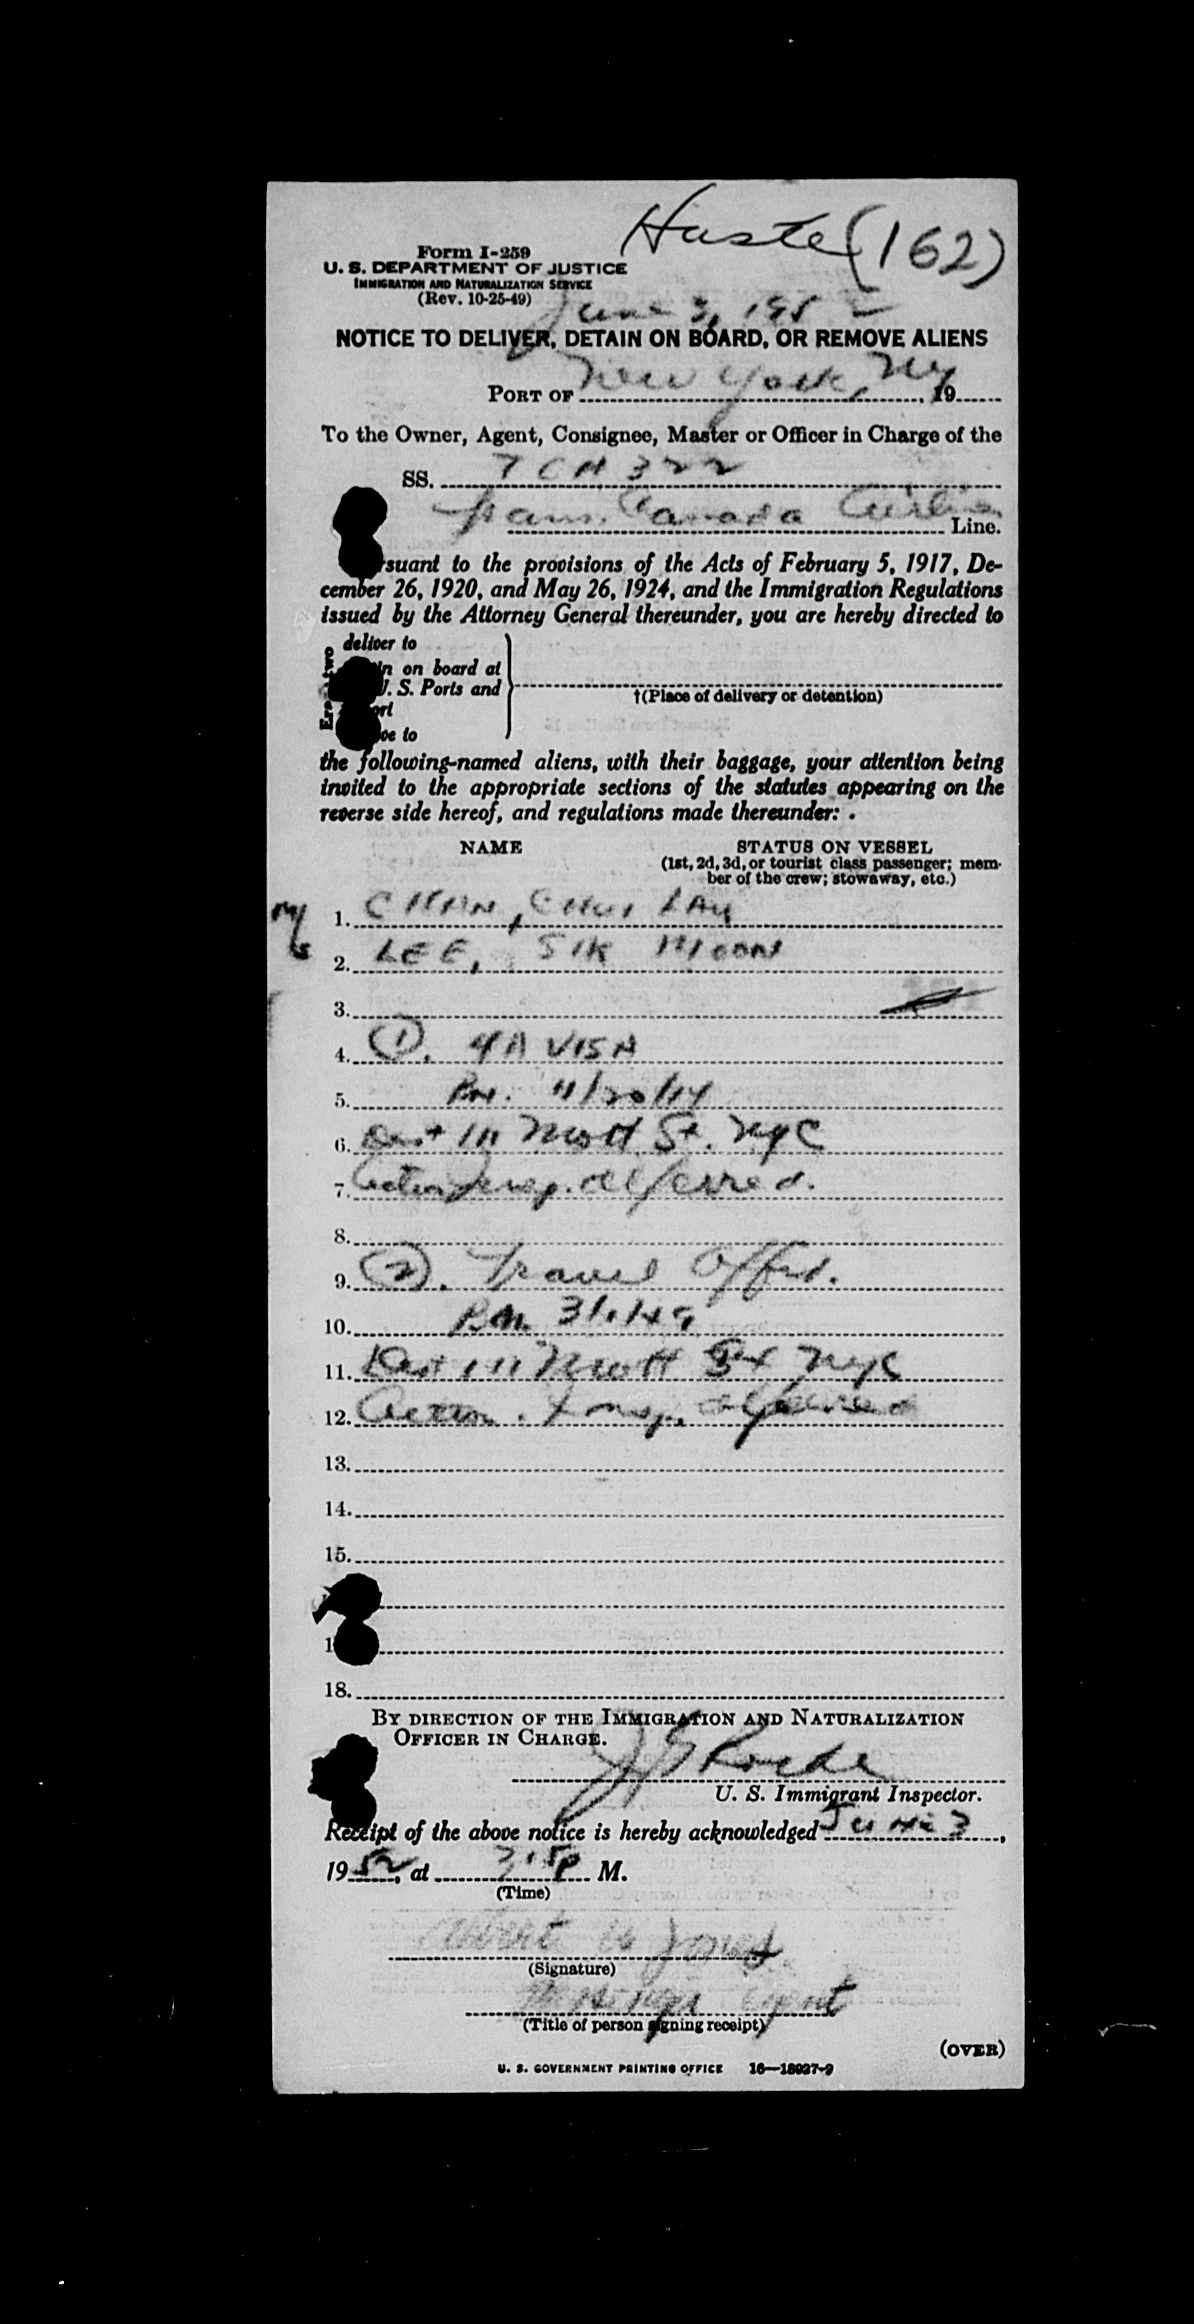 Haste (162)
Form I-259
U. S. DEPARTMENT OF JUSTICE
IMMIGRATION AND NATURALIZATION SERVICE
(Rev. 10-25-49)
June 3, 1952
NOTICE TO DELIVER, DETAIN ON BOARD, OR REMOVE ALIENS
PORT OF New York, NY, 19
To the Owner, Agent, Consignee, Master or Officer in Charge of the
SS. TCA 322
Trans. Canada Airlines Line.
rsuant to the provisions of the Acts of February 5, 1917, De-
cember 26, 1920, and May 26, 1924, and the Immigration Regulations
issued by the Attorney General thereunder, you are hereby directed to
deliver to
in on board at
U. S. Ports and
ort
ve to
two
†(Place of delivery or detention)
the following-named aliens, with their baggage, your attention being
invited to the appropriate sections of the statutes appearing on the
reverse side hereof, and regulations made thereunder: .
NAME STATUS ON VESSEL
(1st, 2d, 3d, or tourist class passenger; mem-
ber of the crew; stowaway, etc.)
1. CHAN, CHUI LAU
2. LEE, SIK MOON
3.
4. (1). 4A VISA
5. 11/20/14
6. Dest 111 Mott St. NYC
7. deferred.
8.
9. (2). Travel Offd.
10.
11. Dest 111 Mott St NYC
12. deferred
13.
14.
15.
1
18.
BY DIRECTION OF THE IMMIGRATION AND NATURALIZATION
OFFICER IN CHARGE.
U. S. Immigrant Inspector.
Receipt of the above notice is hereby acknowledged June 3,
1952, at M.
(Time)
Albert Jones
(Signature)
Agent
(Title of person signing receipt)
(OVER)
U. S. GOVERNMENT PRINTING OFFICE 16—18027-9